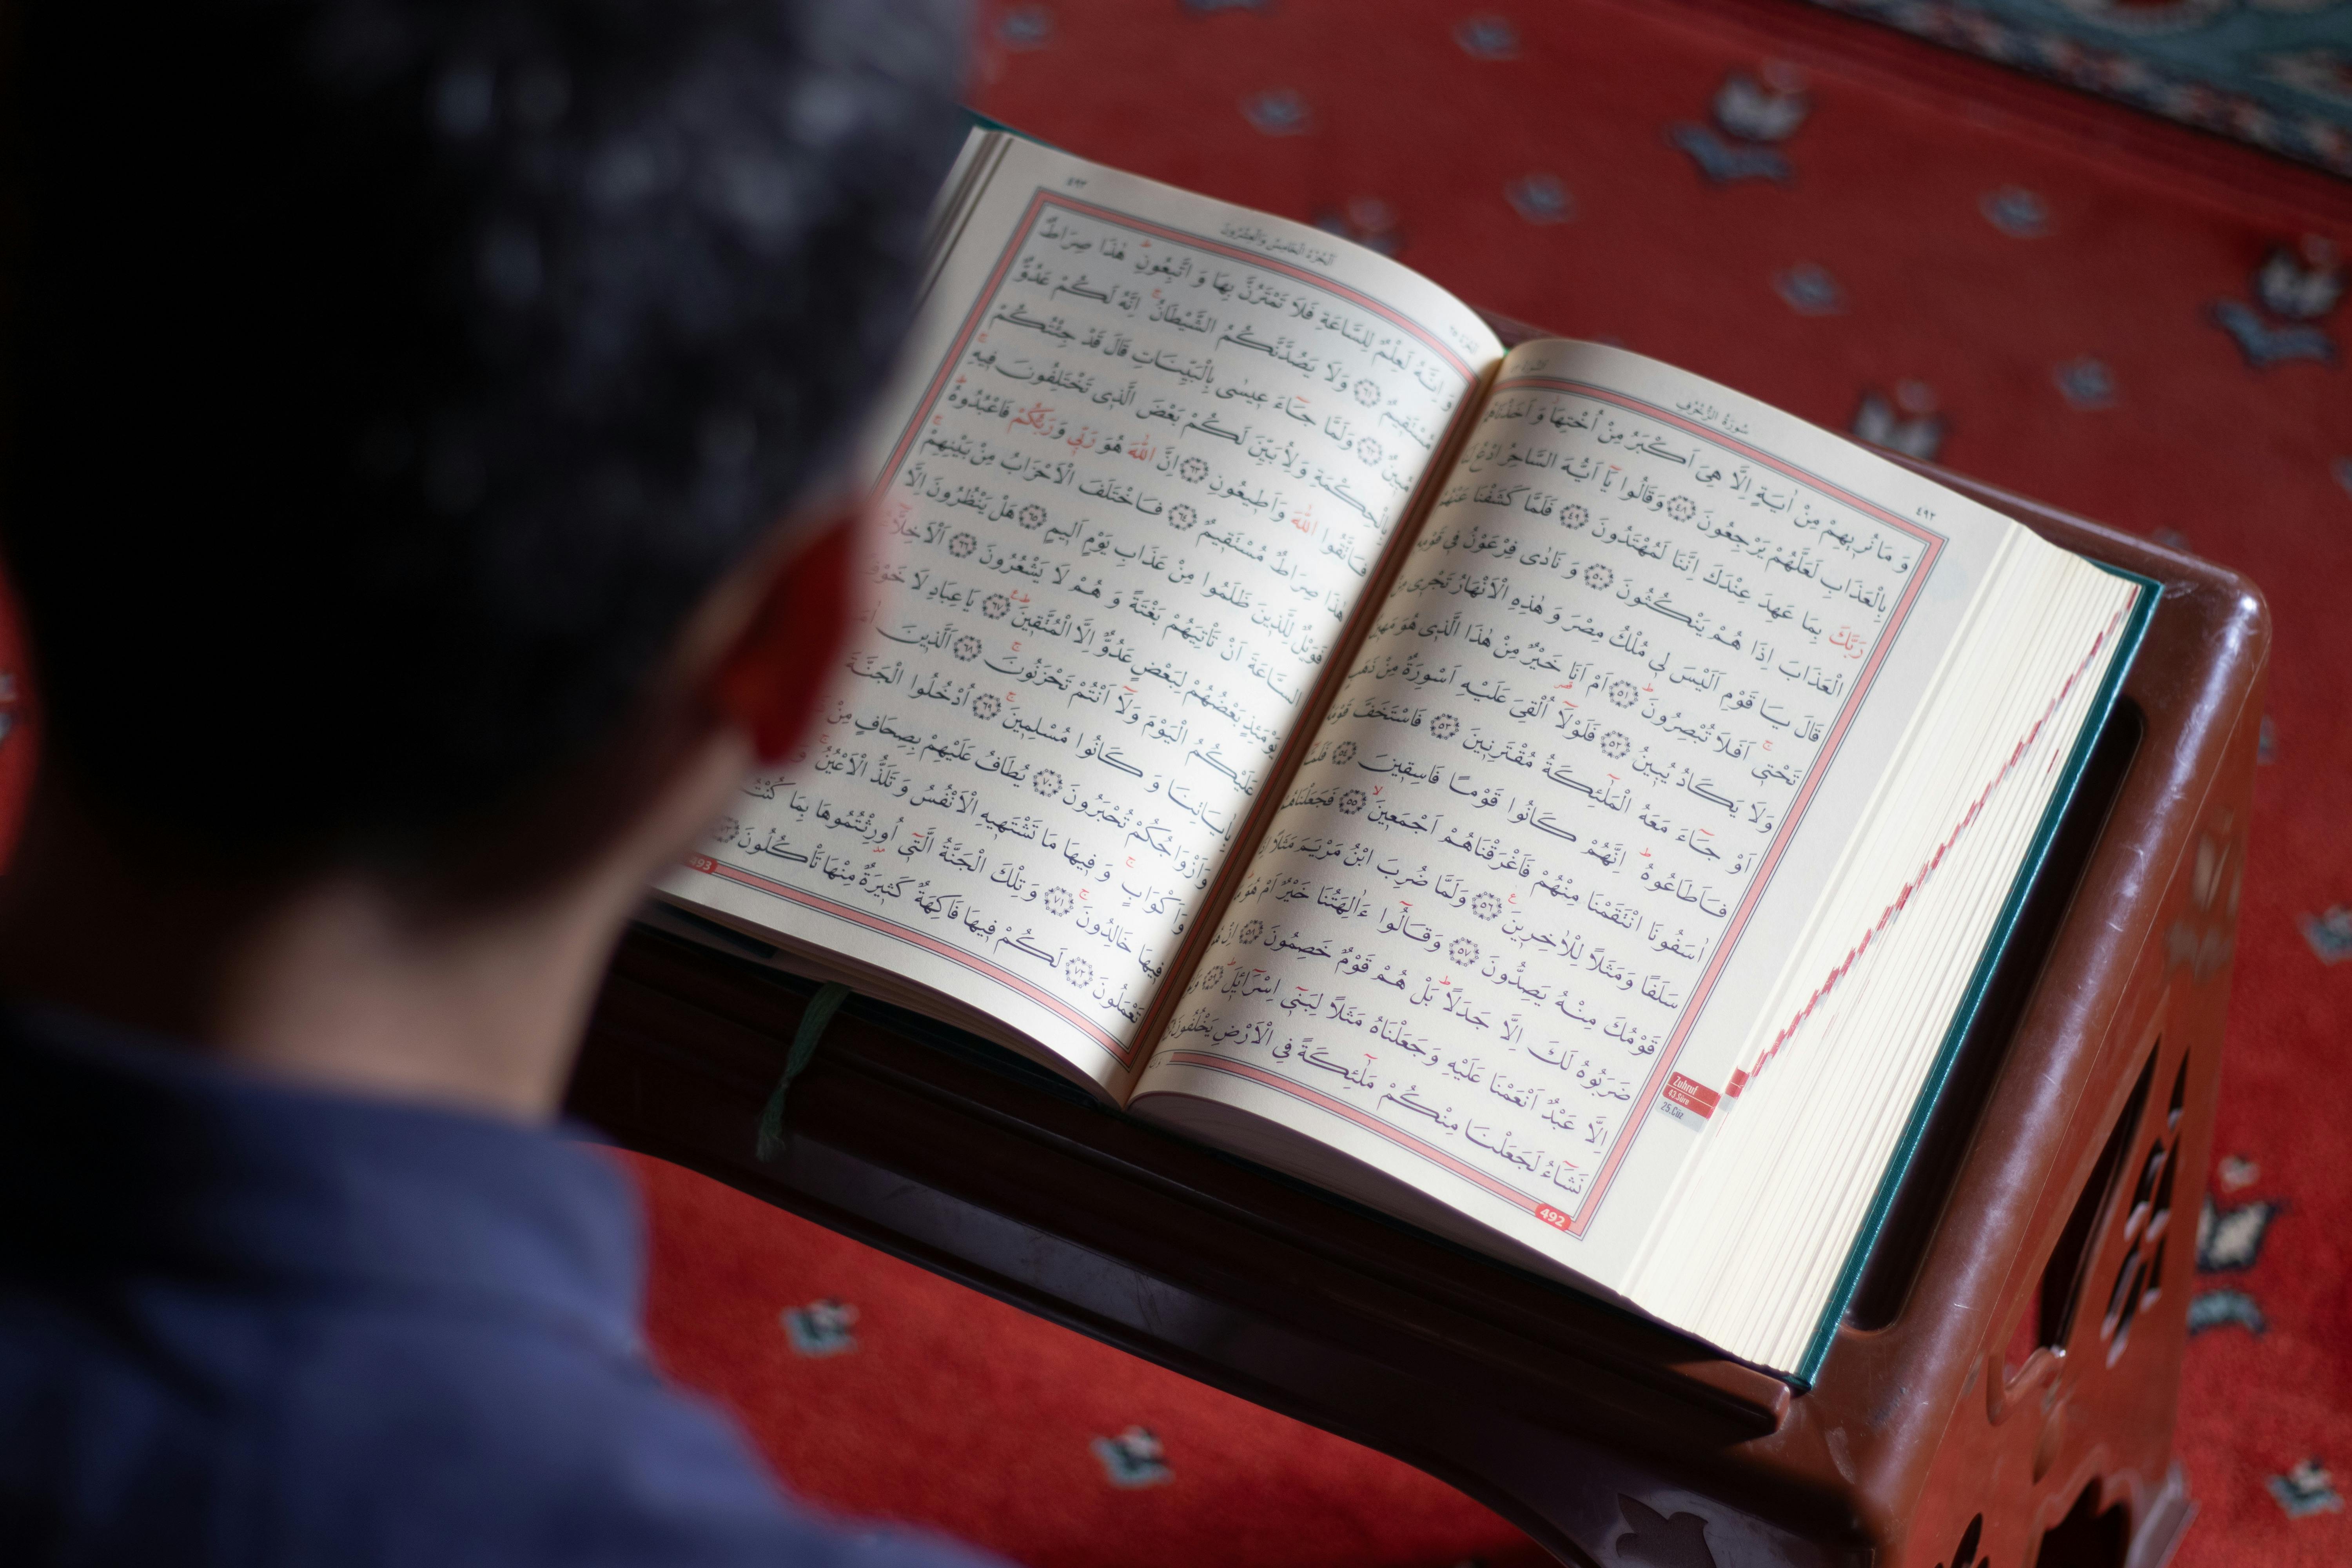 سُورَةُ الزُّخْرُفِ
٤٩٢
وَمَا نُر۪يهِمْ مِنْ اٰيَةٍ اِلَّا هِىَ اَكْبَرُ مِنْ اُخْتِهَاۘ وَاَخَذْنَاهُمْ
بِالْعَذَابِ لَعَلَّهُمْ يَرْجِعُونَ ﴿٤٨﴾ وَقَالُوا يَٓا اَيُّهَ السَّاحِرُ ادْعُ لَنَا
رَبَّكَ بِمَا عَهِدَ عِنْدَكَ اِنَّنَا لَمُهْتَدُونَ ﴿٤٩﴾ فَلَمَّا كَشَفْنَا عَنْهُمُ
الْعَذَابَ اِذَا هُمْ يَنْكُثُونَ ﴿٥٠﴾ وَنَادٰى فِرْعَوْنُ ف۪ي قَوْمِه۪
قَالَ يَا قَوْمِ اَلَيْسَ ل۪ي مُلْكُ مِصْرَ وَهٰذِهِ الْاَنْهَارُ تَجْر۪ى مِنْ
تَحْت۪يۚ اَفَلَا تُبْصِرُونَۜ ﴿٥١﴾ اَمْ اَنَا خَيْرٌ مِنْ هٰذَا الَّذ۪ى هُوَ مَه۪ينٌ
وَلَا يَكَادُ يُب۪ينُ ﴿٥٢﴾ فَلَوْلَٓا اُلْقِيَ عَلَيْهِ اَسْوِرَةٌ مِنْ ذَهَبٍ
اَوْ جَٓاءَ مَعَهُ الْمَلٰٓئِكَةُ مُقْتَرِن۪ينَ ﴿٥٣﴾ فَاسْتَخَفَّ قَوْمَهُ
فَاَطَاعُوهُۜ اِنَّهُمْ كَانُوا قَوْمًا فَاسِق۪ينَ ﴿٥٤﴾ فَلَمَّٓا
اٰسَفُونَا انْتَقَمْنَا مِنْهُمْ فَاَغْرَقْنَاهُمْ اَجْمَع۪ينَۙ ﴿٥٥﴾ فَجَعَلْنَاهُمْ
سَلَفًا وَمَثَلًا لِلْاٰخِر۪ينَ ﴿٥٦﴾ وَلَمَّا ضُرِبَ ابْنُ مَرْيَمَ مَثَلًا اِذَا
قَوْمُكَ مِنْهُ يَصِدُّونَ ﴿٥٧﴾ وَقَالُٓوا ءَاٰلِهَتُنَا خَيْرٌ اَمْ هُوَۜ مَا
ضَرَبُوهُ لَكَ اِلَّا جَدَلًاۜ بَلْ هُمْ قَوْمٌ خَصِمُونَ ﴿٥٨﴾ اِنْ هُوَ
اِلَّا عَبْدٌ اَنْعَمْنَا عَلَيْهِ وَجَعَلْنَاهُ مَثَلًا لِبَن۪ٓي اِسْرَٓائ۪لَۜ ﴿٥٩﴾ وَلَوْ
نَشَٓاءُ لَجَعَلْنَا مِنْكُمْ مَلٰٓئِكَةً فِي الْاَرْضِ يَخْلُفُونَ
492
Zuhruf
43.Sûre
25.Cüz
٤٩٣
اَلْجُزْءُ الْخَامِسُ وَالْعِشْرُونَ
وَاِنَّهُ لَعِلْمٌ لِلسَّاعَةِ فَلَا تَمْتَرُنَّ بِهَا وَاتَّبِعُونِۜ هٰذَا صِرَاطٌ
مُسْتَق۪يمٌ ﴿٦١﴾ وَلَا يَصُدَّنَّكُمُ الشَّيْطَانُۚ اِنَّهُ لَكُمْ عَدُوٌّ
مُب۪ينٌ ﴿٦٢﴾ وَلَمَّا جَٓاءَ ع۪يسٰى بِالْبَيِّنَاتِ قَالَ قَدْ جِئْتُكُمْ
بِالْحِكْمَةِ وَلِاُبَيِّنَ لَكُمْ بَعْضَ الَّذ۪ى تَخْتَلِفُونَ ف۪يهِۚ
فَاتَّقُوا اللّٰهَ وَاَط۪يعُونِ ﴿٦٣﴾ اِنَّ اللّٰهَ هُوَ رَبّ۪ي وَرَبُّكُمْ فَاعْبُدُوهُۜ
هٰذَا صِرَاطٌ مُسْتَق۪يمٌ ﴿٦٤﴾ فَاخْتَلَفَ الْاَحْزَابُ مِنْ بَيْنِهِمْۚ
فَوَيْلٌ لِلَّذ۪ينَ ظَلَمُوا مِنْ عَذَابِ يَوْمٍ اَل۪يمٍ ﴿٦٥﴾ هَلْ يَنْظُرُونَ اِلَّا
السَّاعَةَ اَنْ تَأْتِيَهُمْ بَغْتَةً وَهُمْ لَا يَشْعُرُونَ ﴿٦٦﴾ اَلْاَخِلَّٓاءُ
يَوْمَئِذٍ بَعْضُهُمْ لِبَعْضٍ عَدُوٌّ اِلَّا الْمُتَّق۪ينَۜ ﴿٦٧﴾ يَا عِبَادِ لَا خَوْفٌ
عَلَيْكُمُ الْيَوْمَ وَلَٓا اَنْتُمْ تَحْزَنُونَۚ ﴿٦٨﴾ اَلَّذ۪ينَ
بِاٰيَاتِنَا وَكَانُوا مُسْلِم۪ينَۚ ﴿٦٩﴾ اُدْخُلُوا الْجَنَّةَ
وَاَزْوَاجُكُمْ تُحْبَرُونَ ﴿٧٠﴾ يُطَافُ عَلَيْهِمْ بِصِحَافٍ مِنْ
وَاَكْوَابٍۚ وَف۪يهَا مَا تَشْتَه۪يهِ الْاَنْفُسُ وَتَلَذُّ الْاَعْيُنُۚ
ف۪يهَا خَالِدُونَۚ ﴿٧١﴾ وَتِلْكَ الْجَنَّةُ الَّت۪ٓي اُو۫رِثْتُمُوهَا بِمَا كُنْتُمْ
تَعْمَلُونَ ﴿٧٢﴾ لَكُمْ ف۪يهَا فَاكِهَةٌ كَث۪يرَةٌ مِنْهَا تَأْكُلُونَ
493